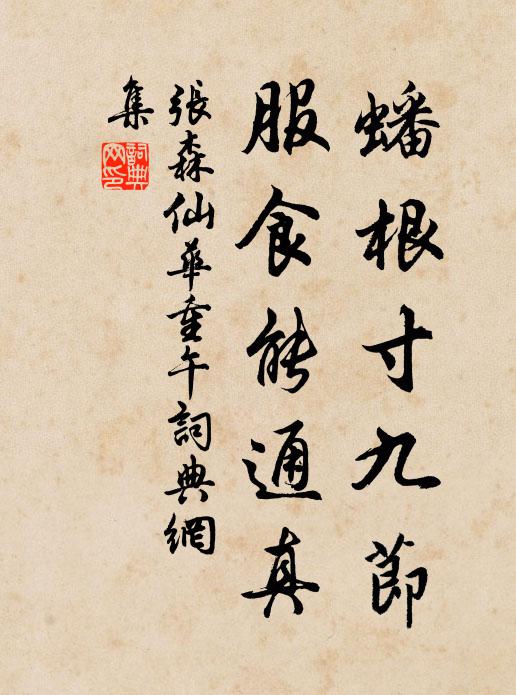 蟠根寸九節
服食能通真
張森仙華重午詞典網
集
詞典網印